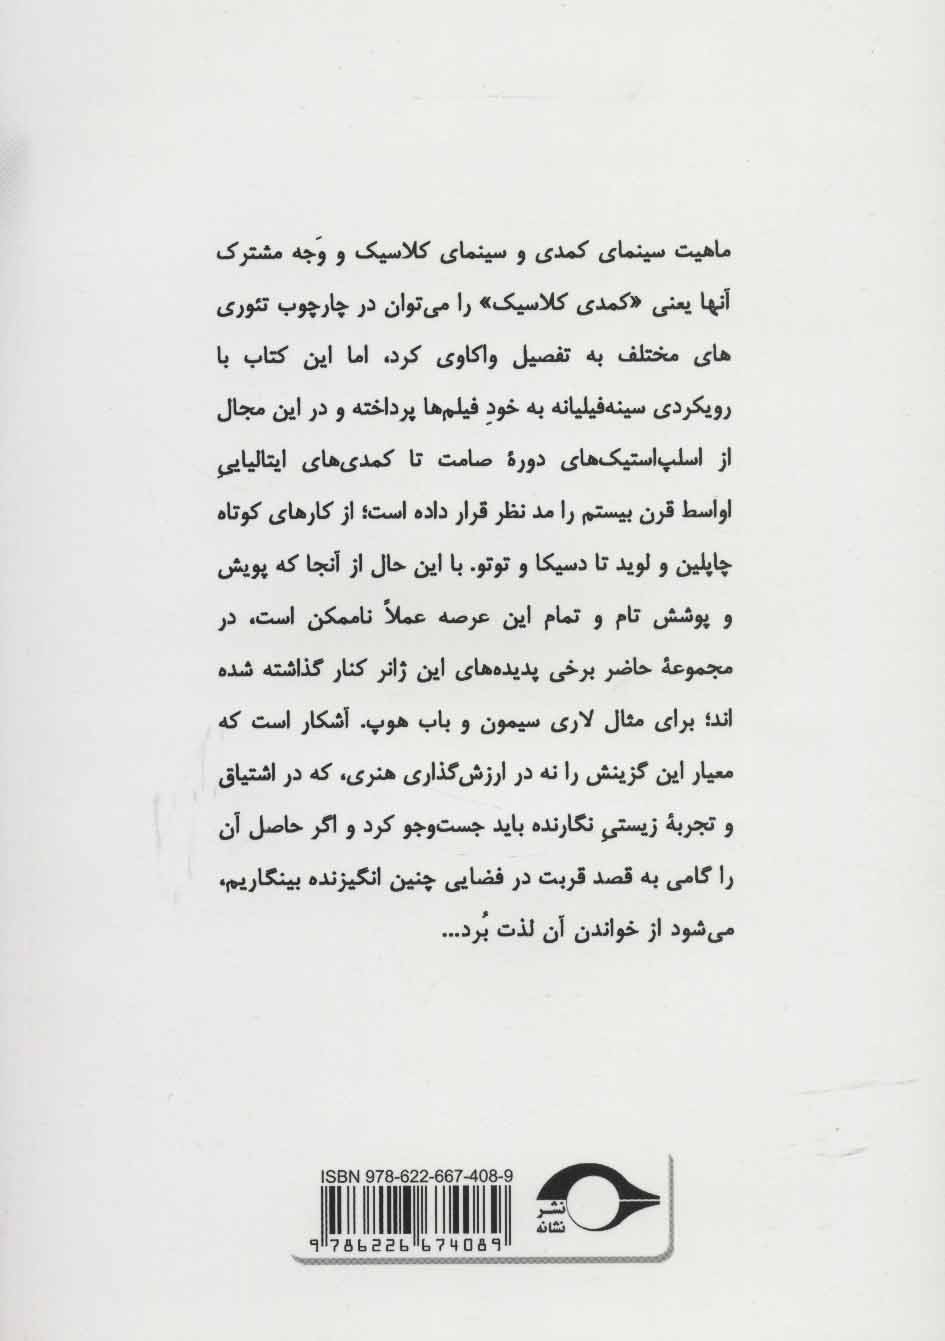 ماهیت سینمای کمدی و سینمای کلاسیک و وَجه مشترک
آنها یعنی «کمدی کلاسیک» را می‌توان در چارچوب تئوری
های مختلف به تفصیل واکاوی کرد، اما این کتاب با
رویکردی سینه‌فیلیانه به خودِ فیلم‌ها پرداخته و در این مجال
از اسلپ‌استیک‌های دورهٔ صامت تا کمدی‌های ایتالیاییِ
اواسط قرن بیستم را مد نظر قرار داده است؛ از کارهای کوتاه
چاپلین و لوید تا دسیکا و توتو. با این حال از آنجا که پویش
و پوشش تام و تمام این عرصه عملاً ناممکن است، در
مجموعهٔ حاضر برخی پدیده‌های این ژانر کنار گذاشته شده
اند؛ برای مثال لاری سیمون و باب هوپ. آشکار است که
معیار این گزینش را نه در ارزش‌گذاری هنری، که در اشتیاق
و تجربهٔ زیستیِ نگارنده باید جست‌وجو کرد و اگر حاصل آن
را گامی به قصد قربت در فضایی چنین انگیزنده بینگاریم،
می‌شود از خواندن آن لذت بُرد...
ISBN 978-622-667-408-9
9 786226 674089
نشر
نشانه